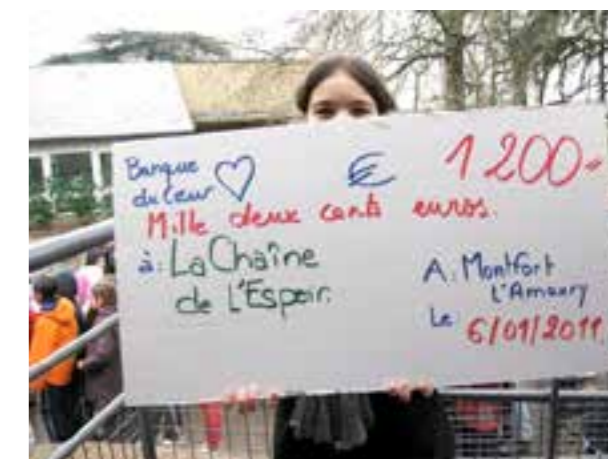 Banque
du Cœur € 1 200-
Mille deux cents euros.
à: La Chaîne
de L'Espoir.
A: Montfort
L'Amaury
Le 6/01/2011